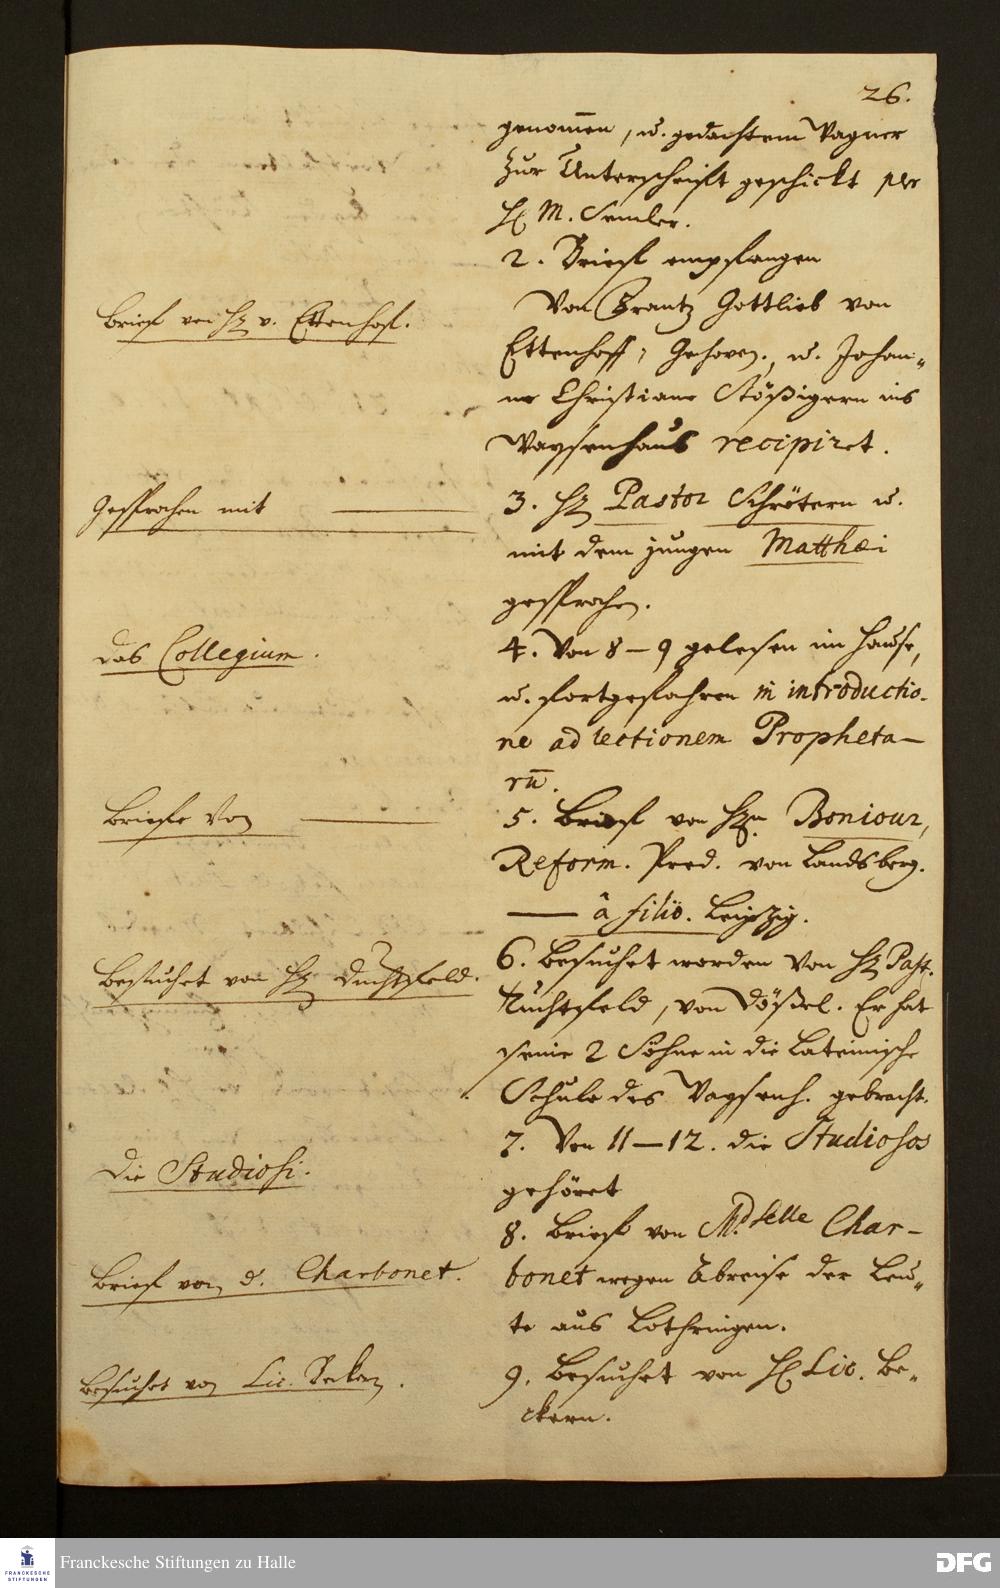 26.
genom̅en, u. gedachtem Wagner
zur Unterschrifft geschickt per
H. M. Semler.
2. Brieff empfangen
Brieff von H. v. Ettenhoff.
Von Frantz Gottlieb von
Ettenhoff, Gehoven. u. Johan-
ne Christiane Stößigern ins
Waysenhaus recipiret.
Gesprochen mit
3. H. Pastor Schrötern u.
mit dem jungen Matthæi
gesprochen.
das Collegium.
4. Von 8 – 9 gelesen im Hause,
u. fortgefahren in introductio-
ne ad lectionem Propheta-
rū.
Brieffe Von
5. Brieff von Hrn Boniour,
Reform. Pred. von Landsberg.
— â filiô. Leipzig.
Besuchet von H. Duchtfeld.
6. Besuchet worden Von H. Past.
Tuchtfeld, von Dößel. Er hat
seine 2 Söhne in die Lateinische
Schule des Waysenh. gebracht.
die Studiosi.
7. Von 11 – 12. die Studiosos
gehöret
8. Brieff von Mdselle Char-
Brieff von d. Charbonet.
bonet wegen Abreise der Leu-
te aus Lothringen.
Besuchet von Lic. Beckern.
9. Besuchet von H. Lic. Be-
ckern.
Franckesche Stiftungen zu Halle
FRANCKESCHE
STIFTUNGEN
DFG